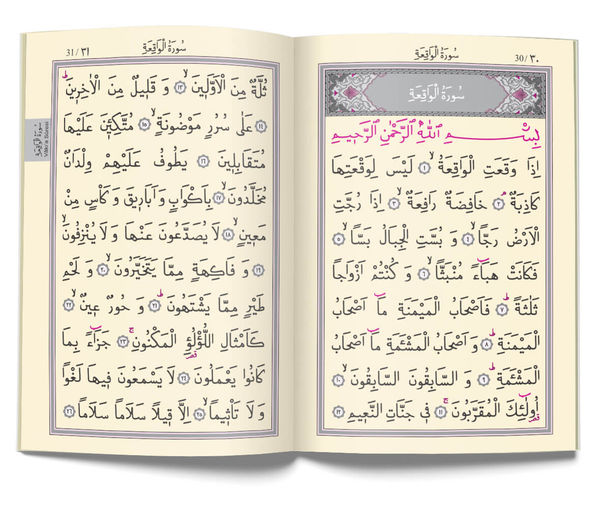 سُورَةُ الْوَاقِعَةِ 30/٣٠
سُورَةُ الْوَاقِعَةِ
بِسْمِ اللّٰهِ الرَّحْمٰنِ الرَّحِيمِ
اِذَا وَقَعَتِ الْوَاقِعَةُ ﴿١﴾ لَيْسَ لِوَقْعَتِهَا
كَاذِبَةٌ ﴿٢﴾ خَافِضَةٌ رَافِعَةٌ ﴿٣﴾ اِذَا رُجَّتِ
الْاَرْضُ رَجًّا ﴿٤﴾ وَ بُسَّتِ الْجِبَالُ بَسًّا ﴿٥﴾
فَكَانَتْ هَبَاءً مُنْبَثًّا ﴿٦﴾ وَ كُنْتُمْ اَزْوَاجًا
ثَلٰثَةً ﴿٧﴾ فَاَصْحَابُ الْمَيْمَنَةِ مَا اَصْحَابُ
الْمَيْمَنَةِ ﴿٨﴾ وَ اَصْحَابُ الْمَشْئَمَةِ مَا اَصْحَابُ
الْمَشْئَمَةِ ﴿٩﴾ وَ السَّابِقُونَ السَّابِقُونَ ﴿١٠﴾
اُولٰئِكَ الْمُقَرَّبُونَ ﴿١١﴾ فِى جَنَّاتِ النَّعِيمِ ﴿١٢﴾
31/٣١ سُورَةُ الْوَاقِعَةِ
ثُلَّةٌ مِنَ الْاَوَّلِينَ ﴿١٣﴾ وَ قَلِيلٌ مِنَ الْاٰخِرِينَ
﴿١٤﴾ عَلٰى سُرُرٍ مَوْضُونَةٍ ﴿١٥﴾ مُتَّكِئِينَ عَلَيْهَا
مُتَقَابِلِينَ ﴿١٦﴾ يَطُوفُ عَلَيْهِمْ وِلْدَانٌ
مُخَلَّدُونَ ﴿١٧﴾ بِاَكْوَابٍ وَ اَبَارِيقَ وَ كَاْسٍ مِنْ
مَعِينٍ ﴿١٨﴾ لَا يُصَدَّعُونَ عَنْهَا وَ لَا يُنْزِفُونَ
﴿١٩﴾ وَ فَاكِهَةٍ مِمَّا يَتَخَيَّرُونَ ﴿٢٠﴾ وَ لَحْمِ
طَيْرٍ مِمَّا يَشْتَهُونَ ﴿٢١﴾ وَ حُورٌ عِينٌ ﴿٢٢﴾
كَاَمْثَالِ اللُّؤْلُؤِ الْمَكْنُونِ ﴿٢٣﴾ جَزَاءً بِمَا
كَانُوا يَعْمَلُونَ ﴿٢٤﴾ لَا يَسْمَعُونَ فِيهَا لَغْوًا
وَ لَا تَاْثِيمًا ﴿٢٥﴾ اِلَّا قِيلًا سَلَامًا سَلَامًا ﴿٢٦﴾
سُورَةُ الْوَاقِعَةِ
Vâkı'a Sûresi